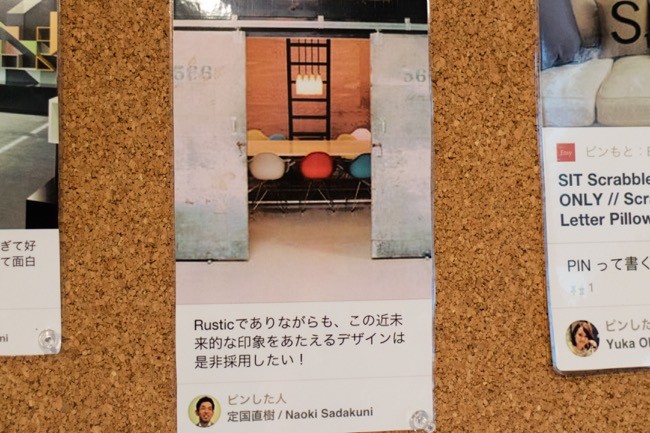 ぎて好
て面白
ni
566
56
Rusticでありながらも、この近未
来的な印象をあたえるデザインは
是非採用したい！
ピンした人
定国直樹 / Naoki Sadakuni
S
ピンもと：
SIT Scrabble
ONLY // Scr
Letter Pillow
PIN って書く
1
ピンした
Yuka O